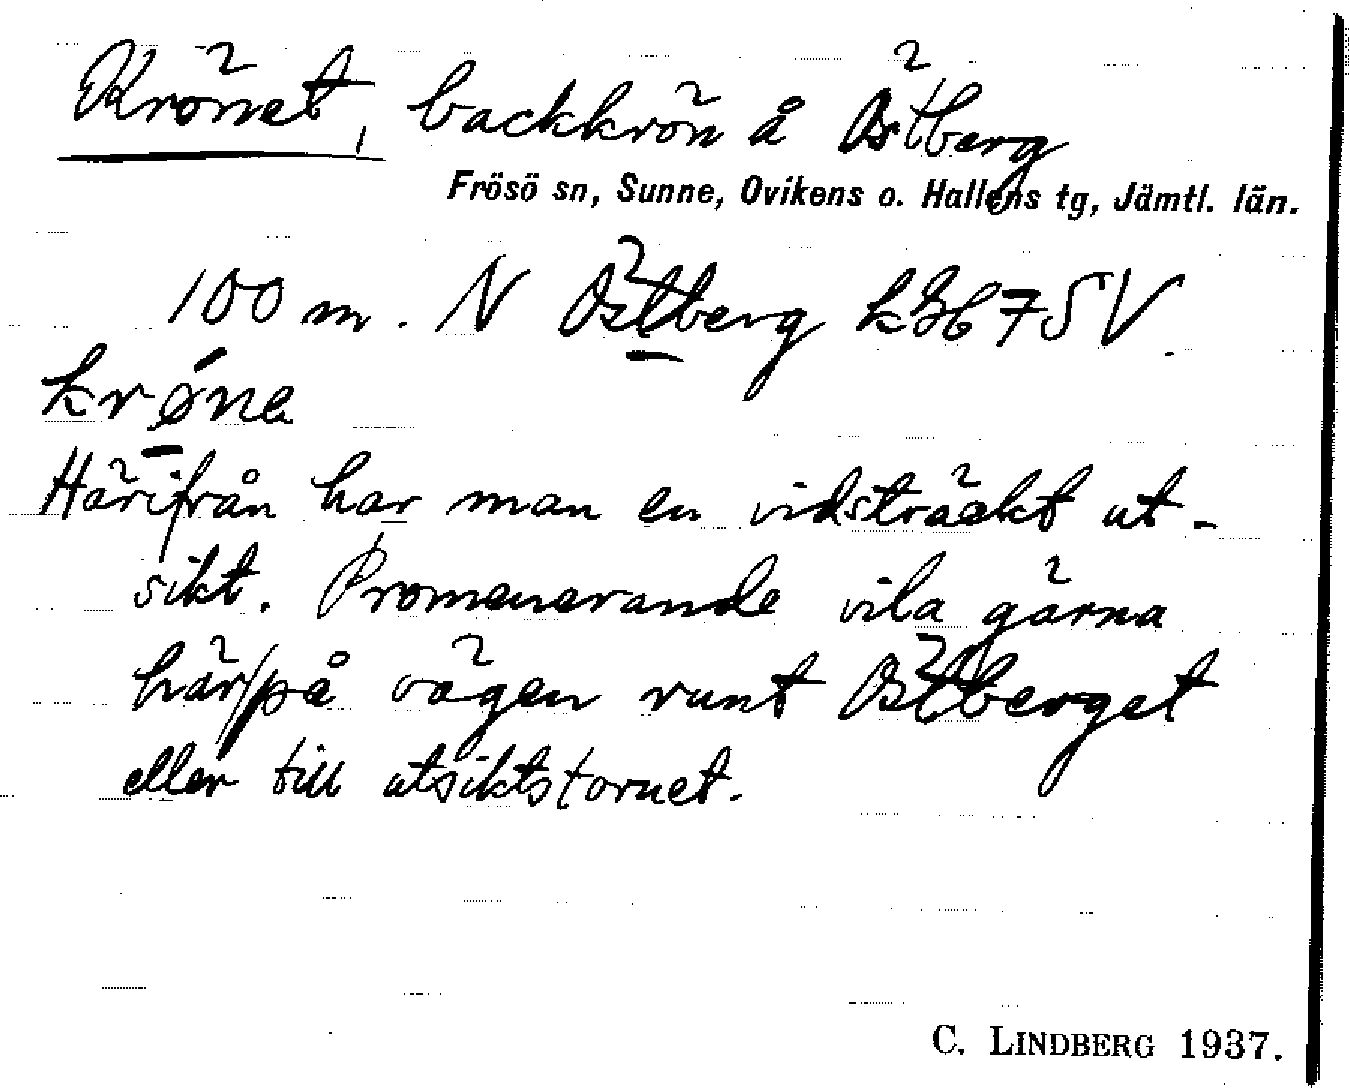 Krönet, backkrön å Östberg
Frösö sn, Sunne, Ovikens o. Hallens tg, Jämtl. län.
100 m. N Östberg k 75 V.
krø̄́na
Härifrån har man en vidsträckt ut-
sikt. Promenerande vila gärna
här/på vägen runt Östberget
eller till utsiktstornet.
C. LINDBERG 1937.